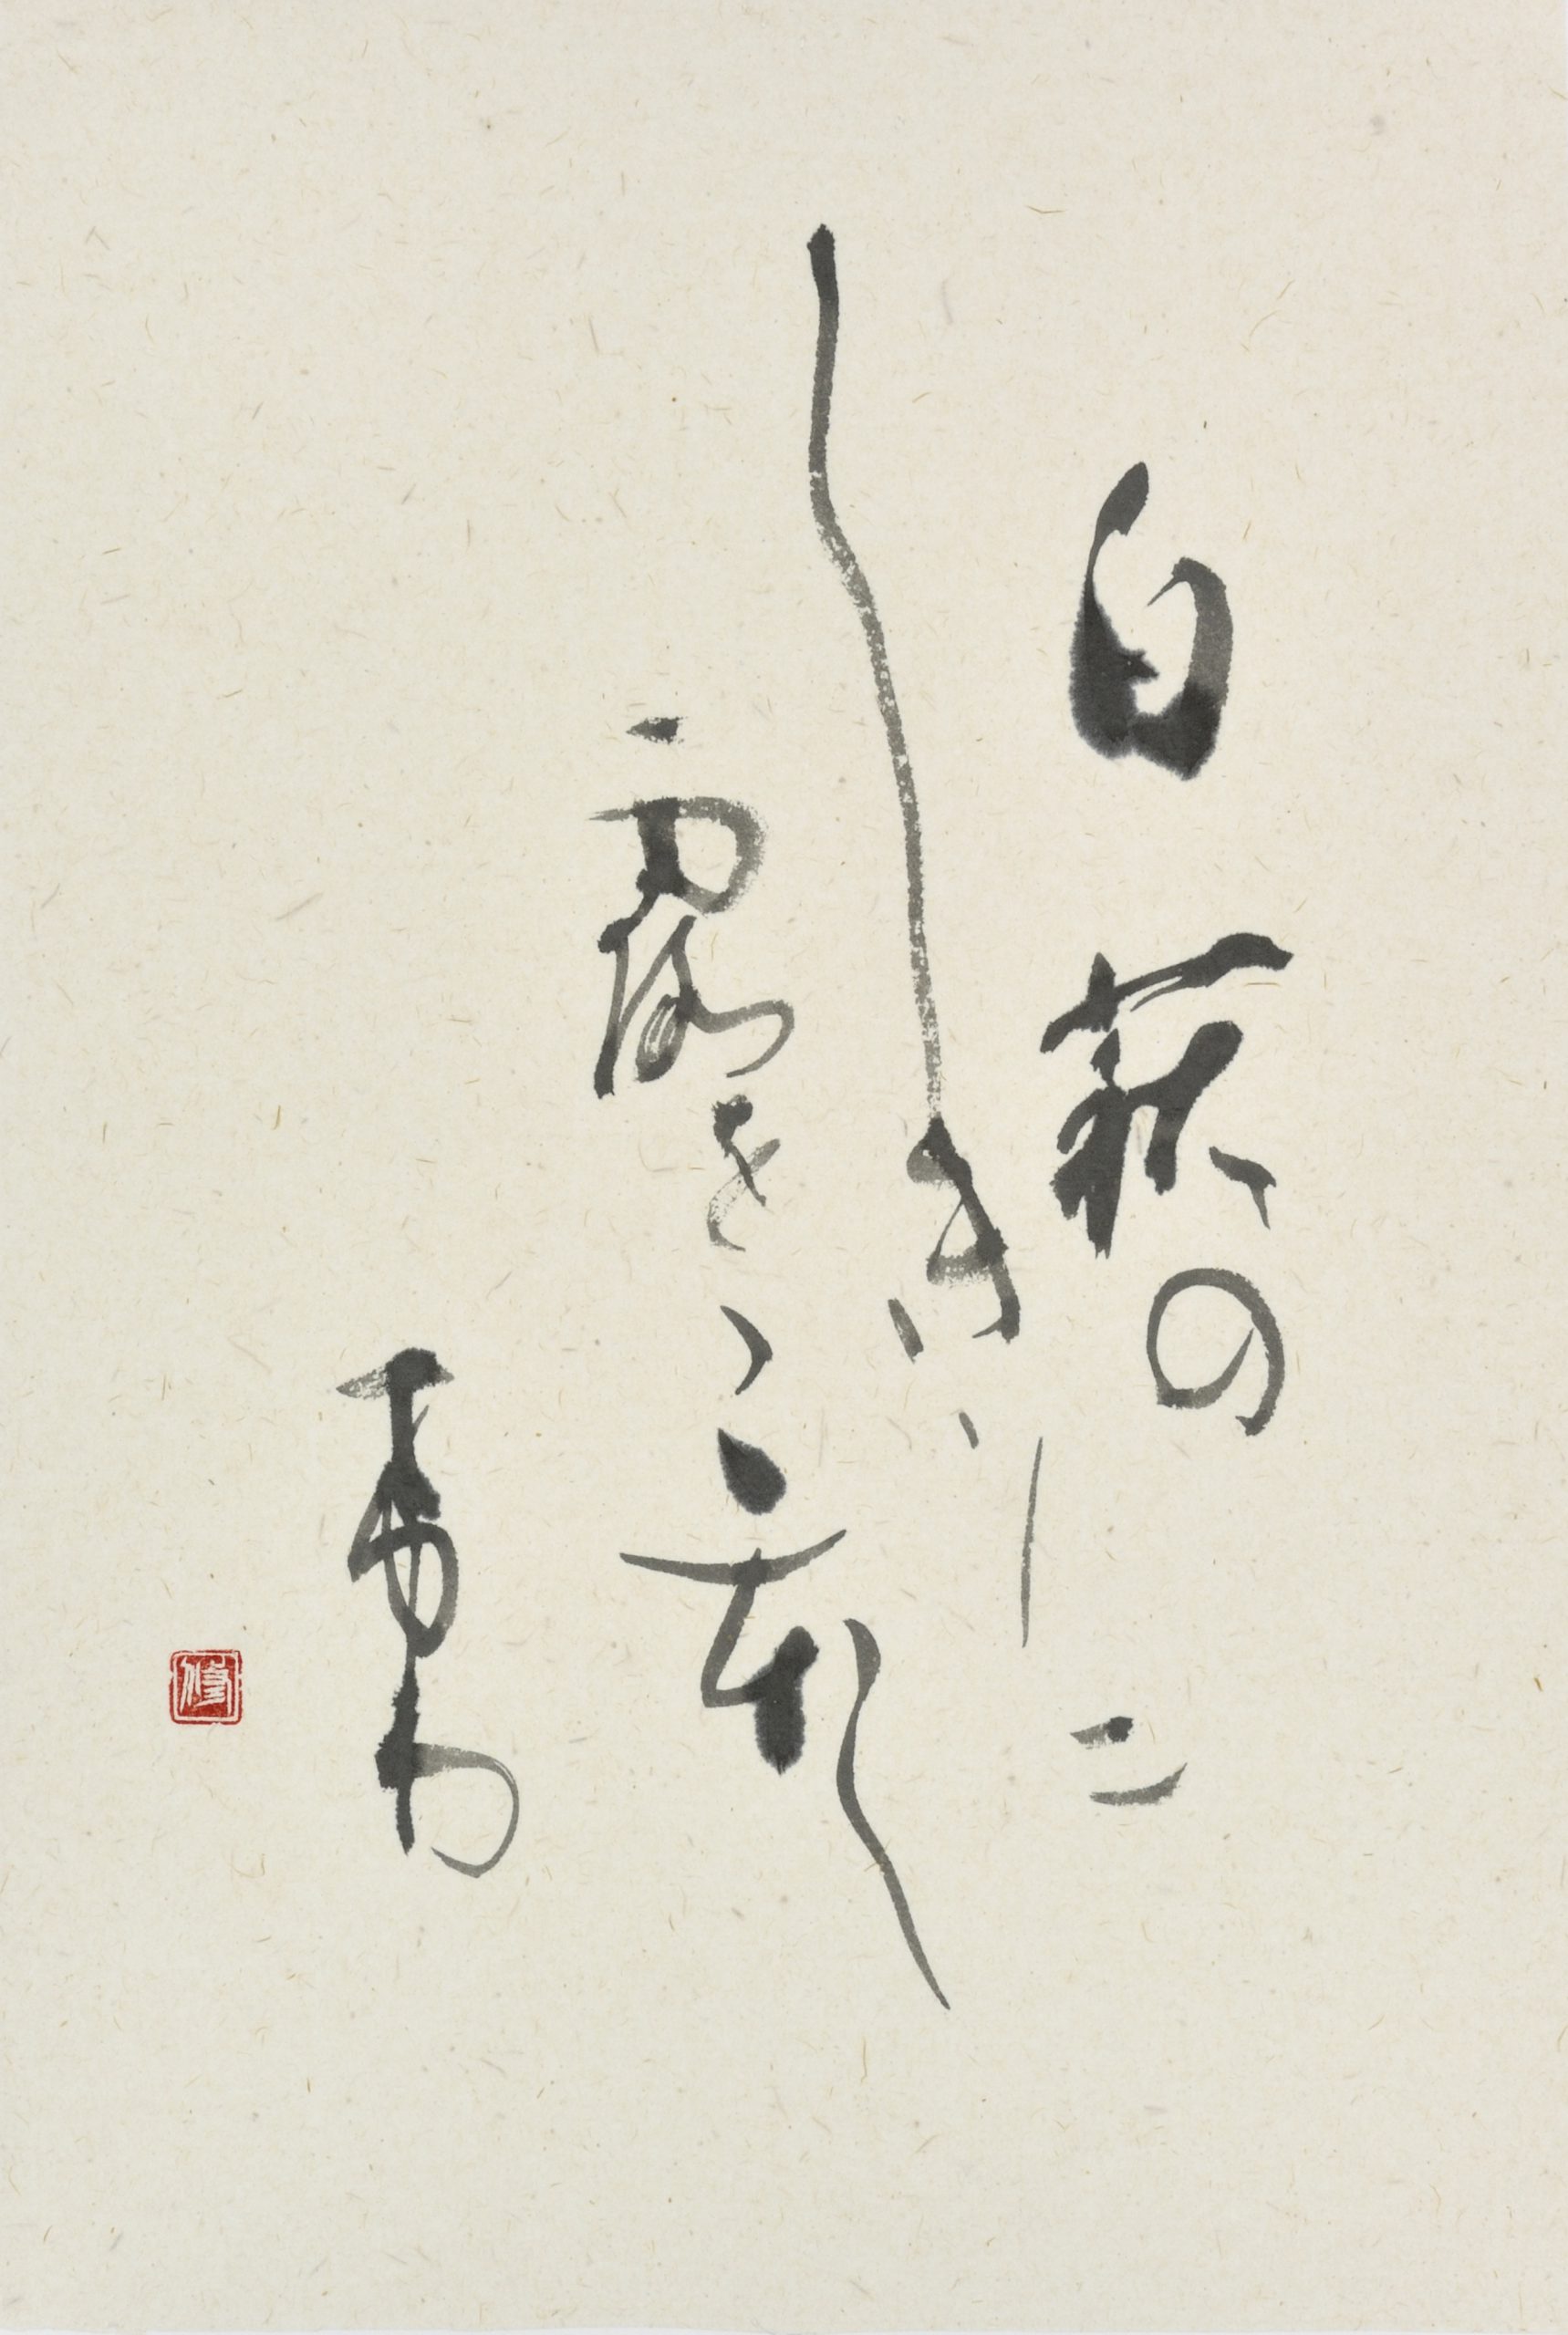 白萩の
しきりに
露をこほし
けり
修